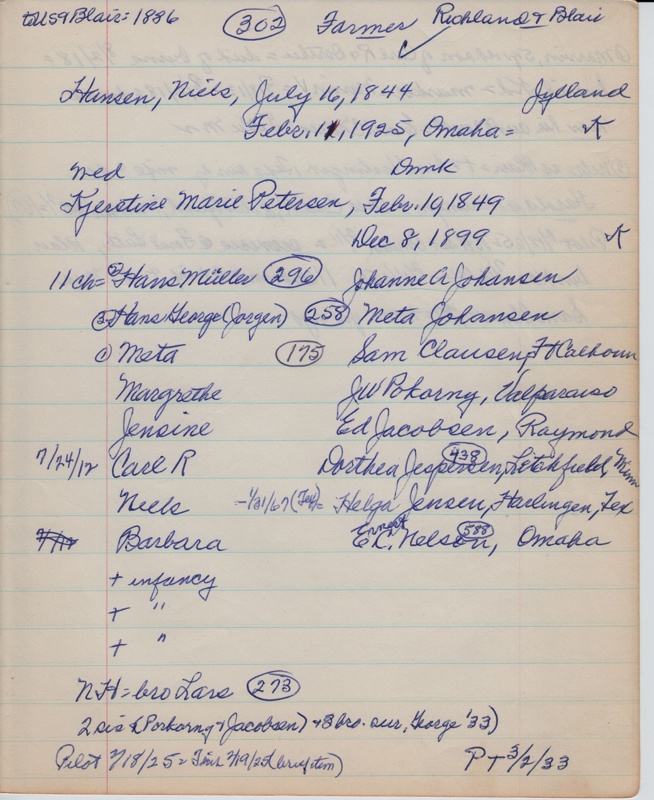 to US & Blair = 1886 (302) Farmer Richland & Blair
Hansen, Niels, July 16, 1844 Jylland
Febr. 11, 1925, Omaha =
wed Dmk
Kjerstine Marie Petersen, Febr. 19, 1849
Dec 8, 1899
11 ch = (2) Hans Müller (296) Johanne A Johansen
(3) Hans George (Jorgen) (258) Meta Johansen
(1) Meta (175) Sam Clausen, Ft Calhoun
Margrethe JW Pokorny, Valparaiso
Jensine Ed Jacobsen, Raymond
7/24/12 Carl R Dorthea Jespersen, (438) Letchfield, Minn
Niels - 1/31/67 (Tex) = Helga Jensen, Harlingen, Tex
Barbara Ernest R. Nelson, (588) Omaha
+ infancy
+ "
+ "
NH = bro Lars (273)
2 sis (Porkorny & Jacobsen) & 3 bro. sur, George '33)
Pilot 2/18/25 = 2/19/25 PT 3/2/33